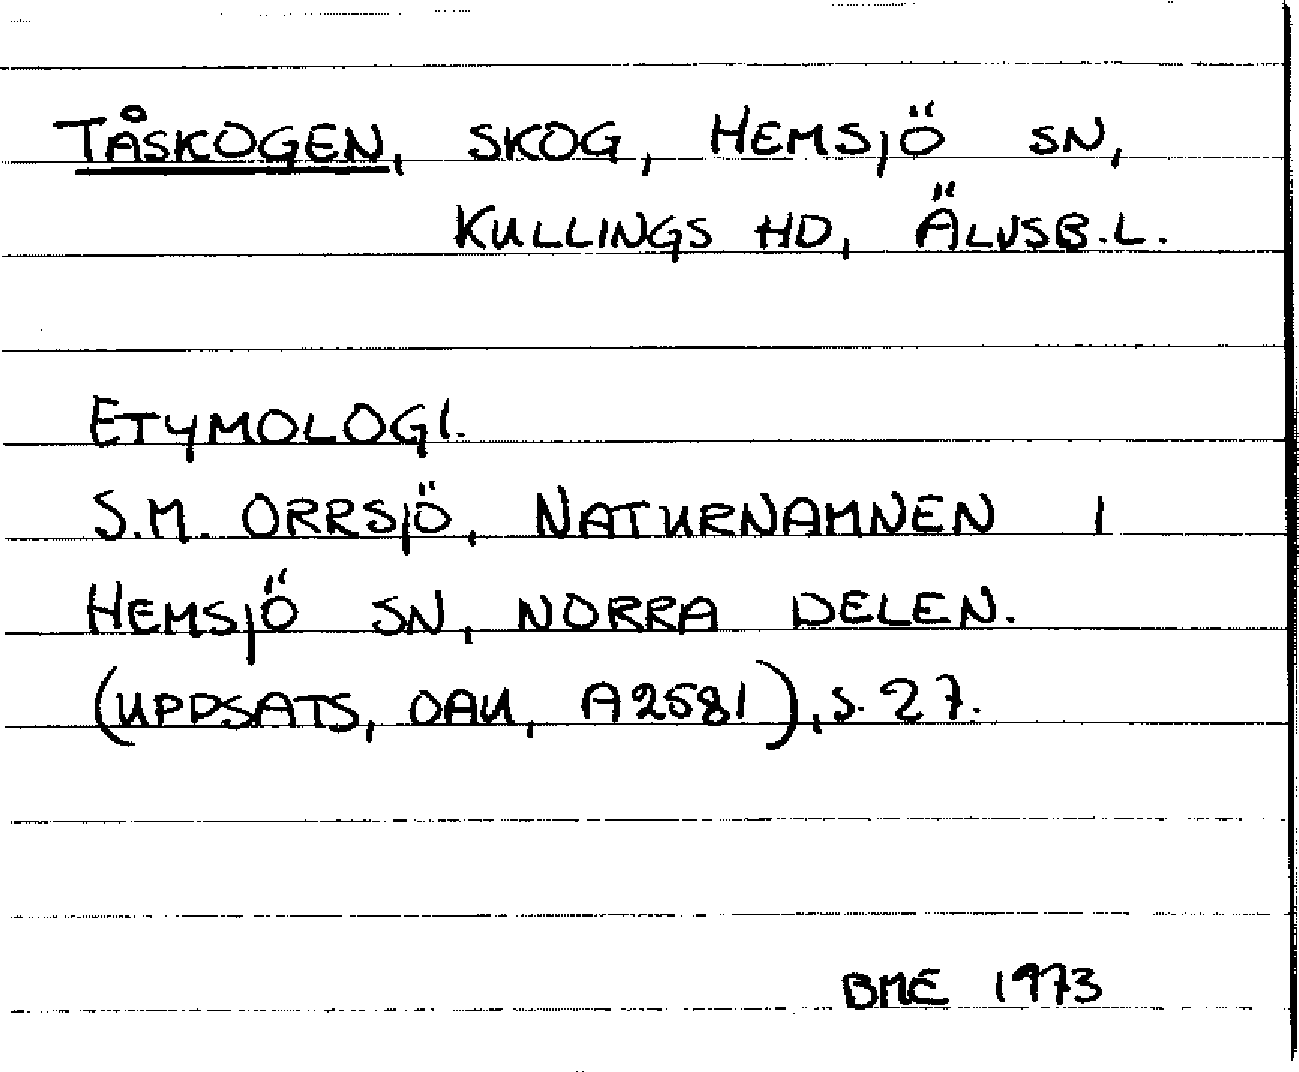 TÅSKOGEN, SKOG, HEMSJÖ SN,
KULLINGS HD, ÄLVSB.L.
ETYMOLOGI.
S.M. ORRSJÖ, NATURNAMNEN I
HEMSJÖ SN, NORRA DELEN.
(UPPSATS, OAU, A2581), S. 27.
BME 1973